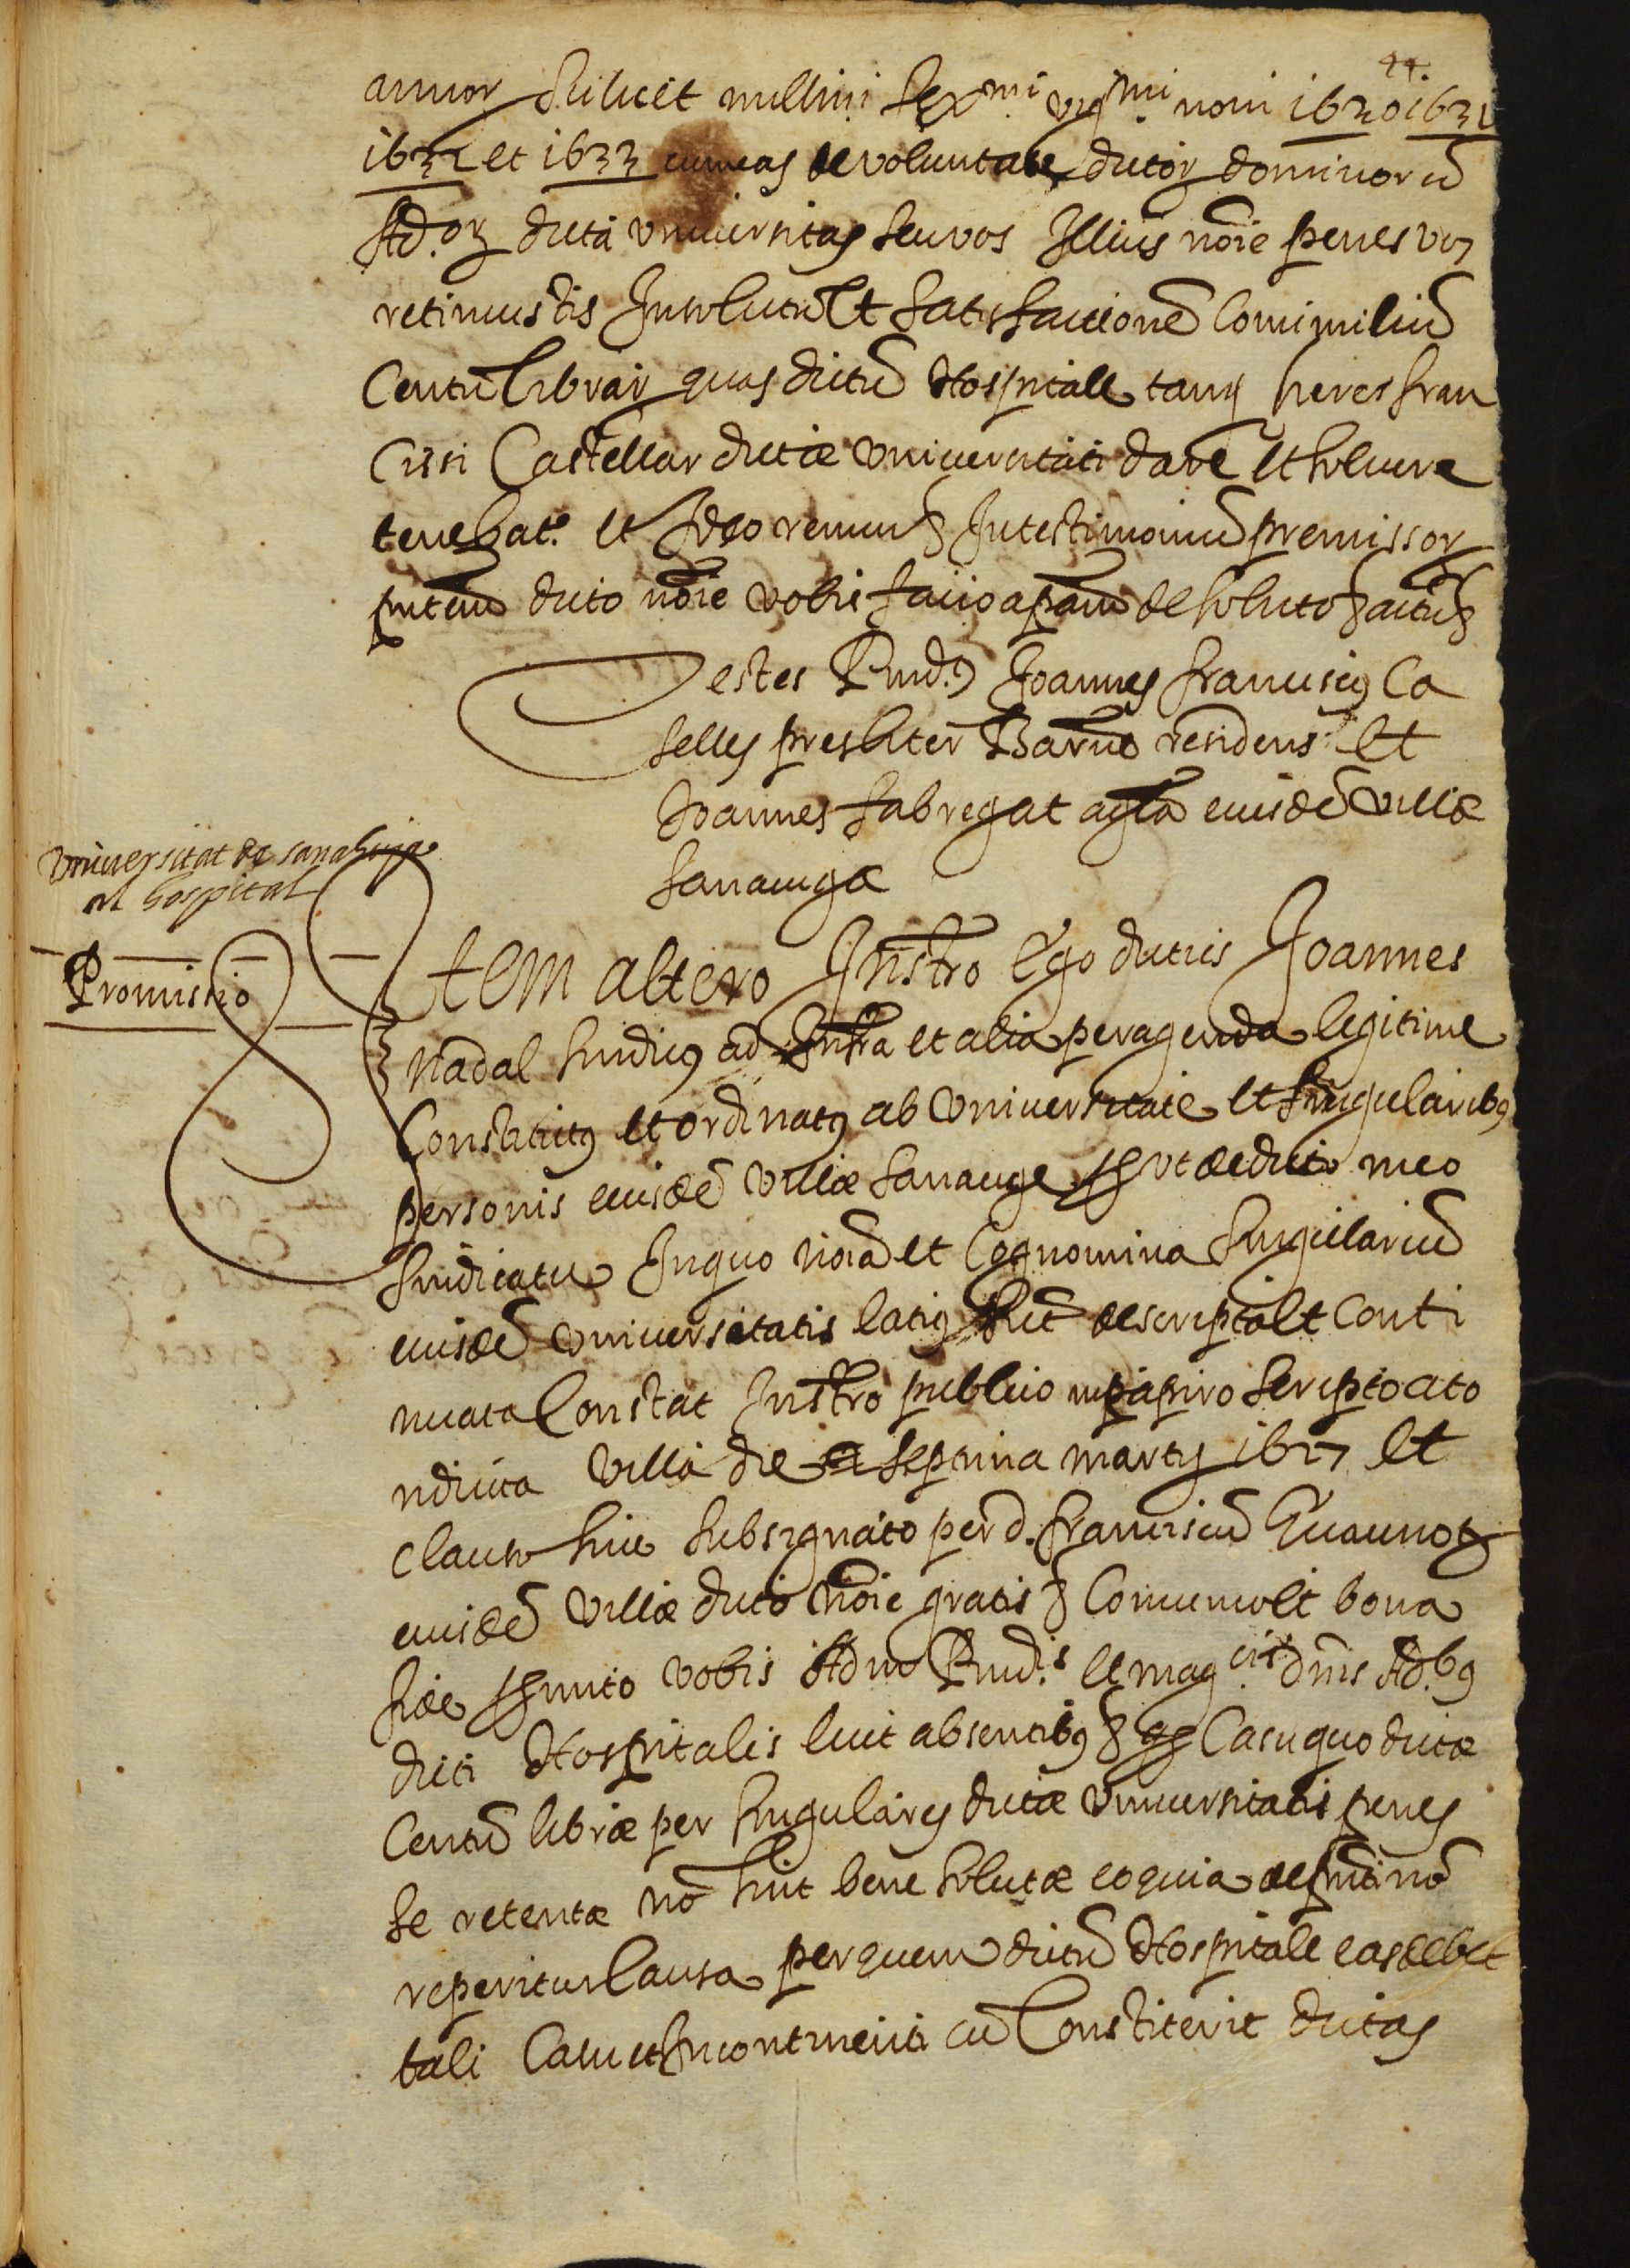 44.
annor scilicet millmi sexmi vigmi noni 1630 1631
1632 et 1633 cum eas de voluntate dictor dominorū
Ad.or dicta universitas seu vos illius noīe penes vos
retinuistis In solutū et satisfactionē Consimiliū
Centū librar quas dictū Hospitale tanq heres fran
cisci Castellar dictæ universitati dare et solvere
tenebat.e et Ideo renunt & In testimoniū premissor
pntem dicto noīe vobis facio apam de soluto & actū &
Testes Rnd.s Joannes franciscus Ca
selles presbiter Barne residens et
Joannes fabregat agla eiusdē villæ
sanaugæ
Universitat de sanahuja
al hospital
Promissio
Item altero Instro Ego dictus Joannes
Nadal sindicus ad Infra et alia peragenda legitime
Constitutus et ordinatus ab universitate et singularibus
personis eiusdē villæ Sanauge ut de dicto meo
sindicatu In quo noīa et Cognomina singulariū
eiusdē universitatis latius sūt descripta et Conti
nuata Constat Instro publico in papiro scripto acto
in dicta villa die septima martii 1627 et
clauso sive subsignato per d. franciscū not
eiusdē villæ dicto noīe gratis & Convenio et bona
fide promito vobis Ad.m Rnd.is et mag.cis dnis Ad.bus
dicti Hospitalis licet absentibus & Casu quo dictæ
Centū libræ per singulares dictæ universitatis penes
se retentæ nō sint bene solutæ eo quia nō
reperitur Causa per quem dictū Hospitale eas debet
tali Casu et In continenti cū Constiterit dictas